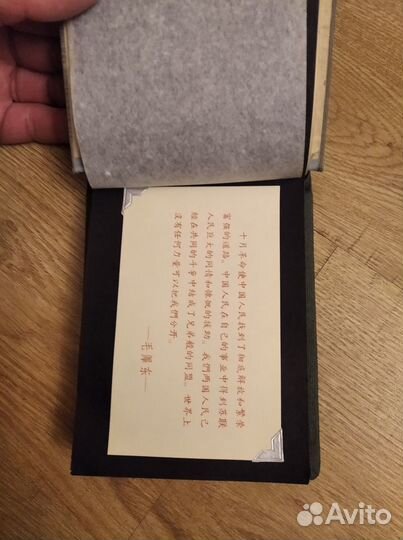 十月革命使中国人民找到了彻底解放和繁荣
富强的道路。中国人民在自己的事业中得到苏联
人民巨大的同情和慷慨的援助。我們两国人民已
经在共同的斗争中结成了兄弟般的同盟。世界上
没有任何力量可以把我們分开。
——毛澤东——
Avito